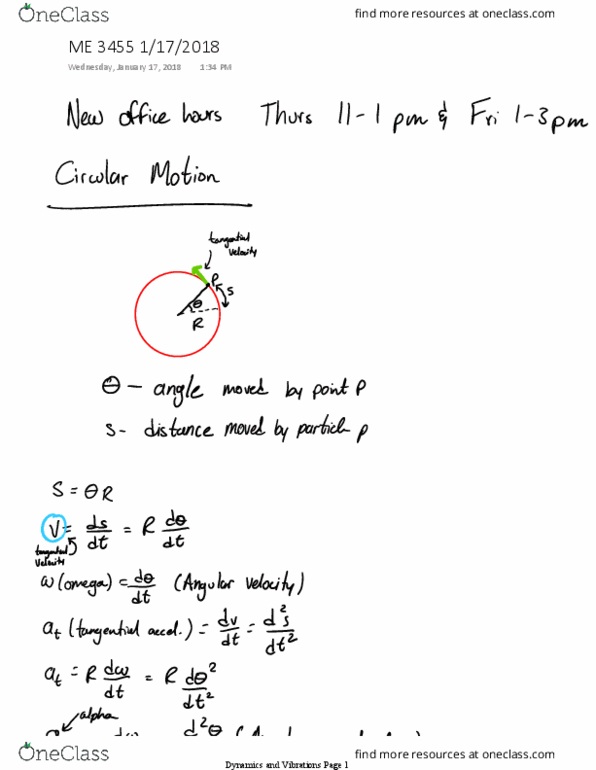 OneClass
find more resources at oneclass.com
ME 3455 1/17/2018
Wednesday, January 17, 2018 1:34 PM
New office hours Thurs 11-1 pm & Fri 1-3pm
Circular Motion
tangential
velocity
P
S
θ
R
θ - angle moved by point P
s- distance moved by particle p
S = θR
V = ds/dt = R dθ/dt
tangential
velocity
ω (omega) = dθ/dt (Angular velocity)
at (tangential accel.) = dv/dt = d²s/dt²
at = R dω/dt = R dθ²/dt²
alpha
dω d²θ
OneClass
find more resources at oneclass.com
Dynamics and Vibrations Page 1